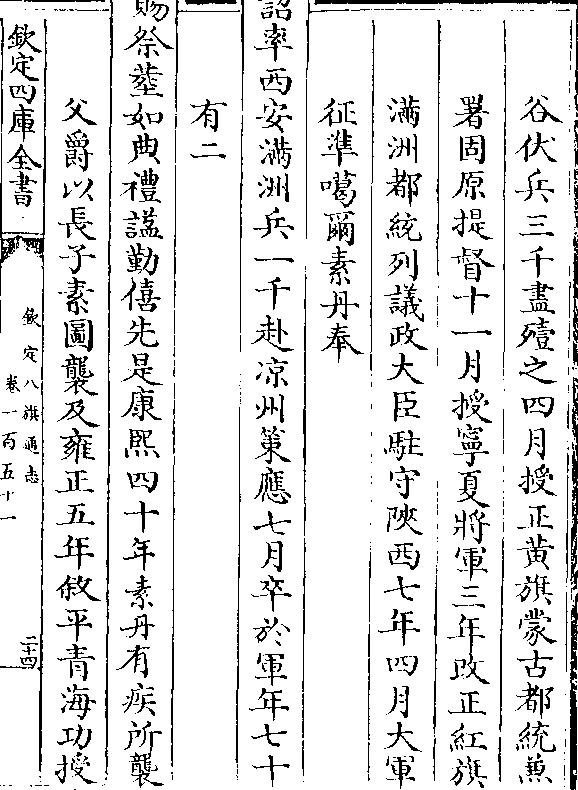 谷伏兵三千盡殪之四月授正黃旗蒙古都統兼
署固原提督十一月授寧夏將軍三年改正紅旗
滿洲都統列議政大臣駐守陝西七年四月大軍
征準噶爾素丹奉
詔率西安滿洲兵一千赴凉州策應七月卒於軍年七十
有二
賜祭塟如典禮諡勤僖先是康熙四十年素丹有疾所襲
父爵以長子素圖襲及雍正五年敘平青海功授
欽定四庫全書
欽定八旗通志
卷一百五十一
二十四